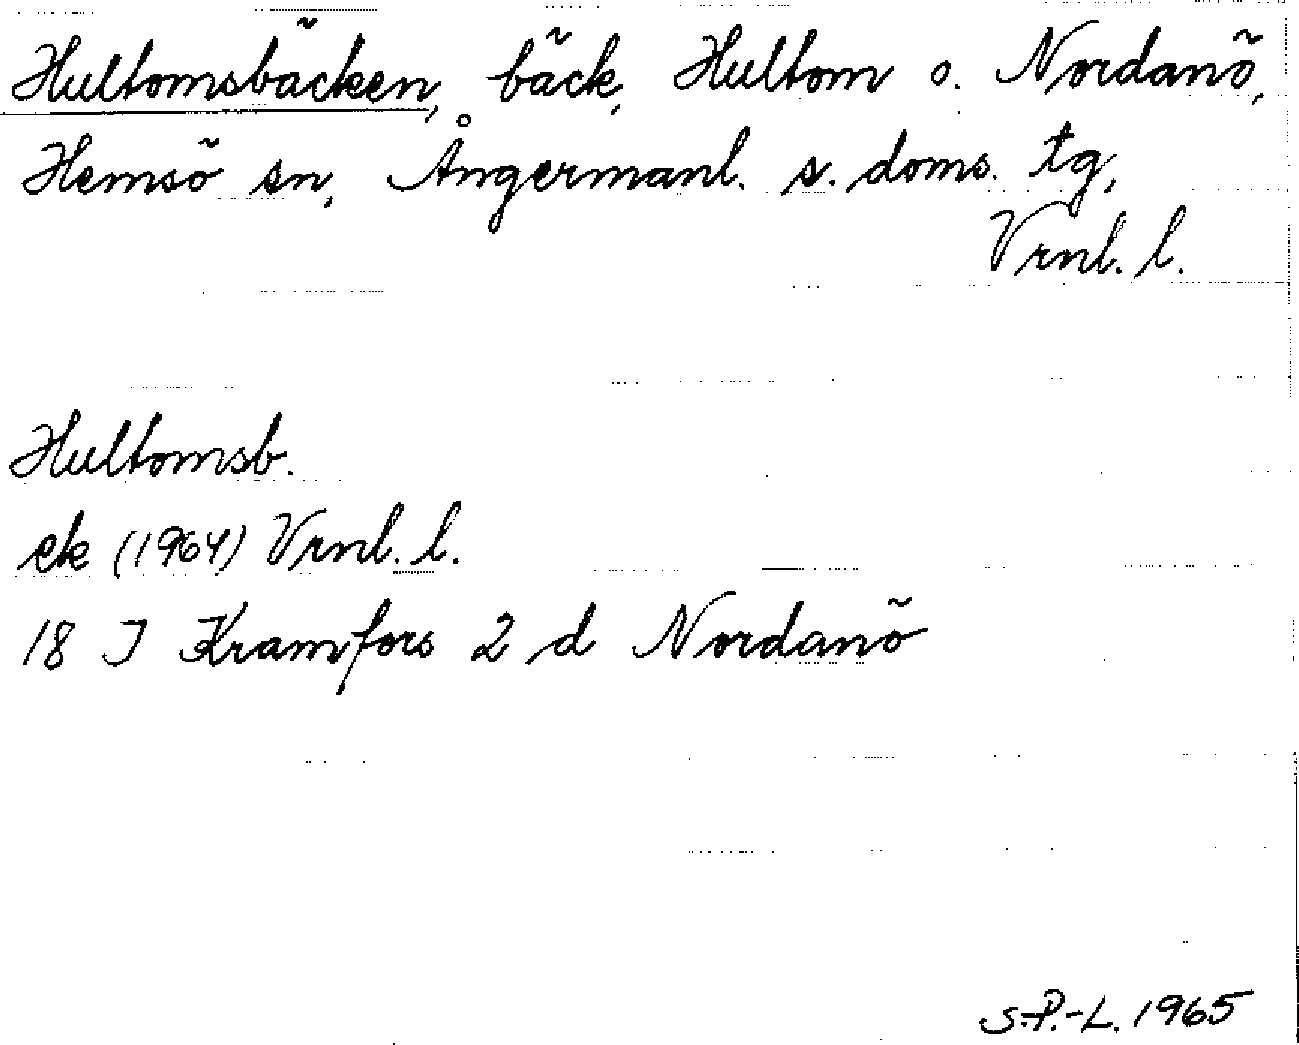 Hultomsbäcken, bäck, Hultom o. Nordanö,
Hemsö sn, Ångermanl. s. doms. tg,
Vrnl. l.
Hultomsb.
ek (1964) Vrnl. l.
18 J Kramfors 2 d Nordanö
S.P.-L. 1965